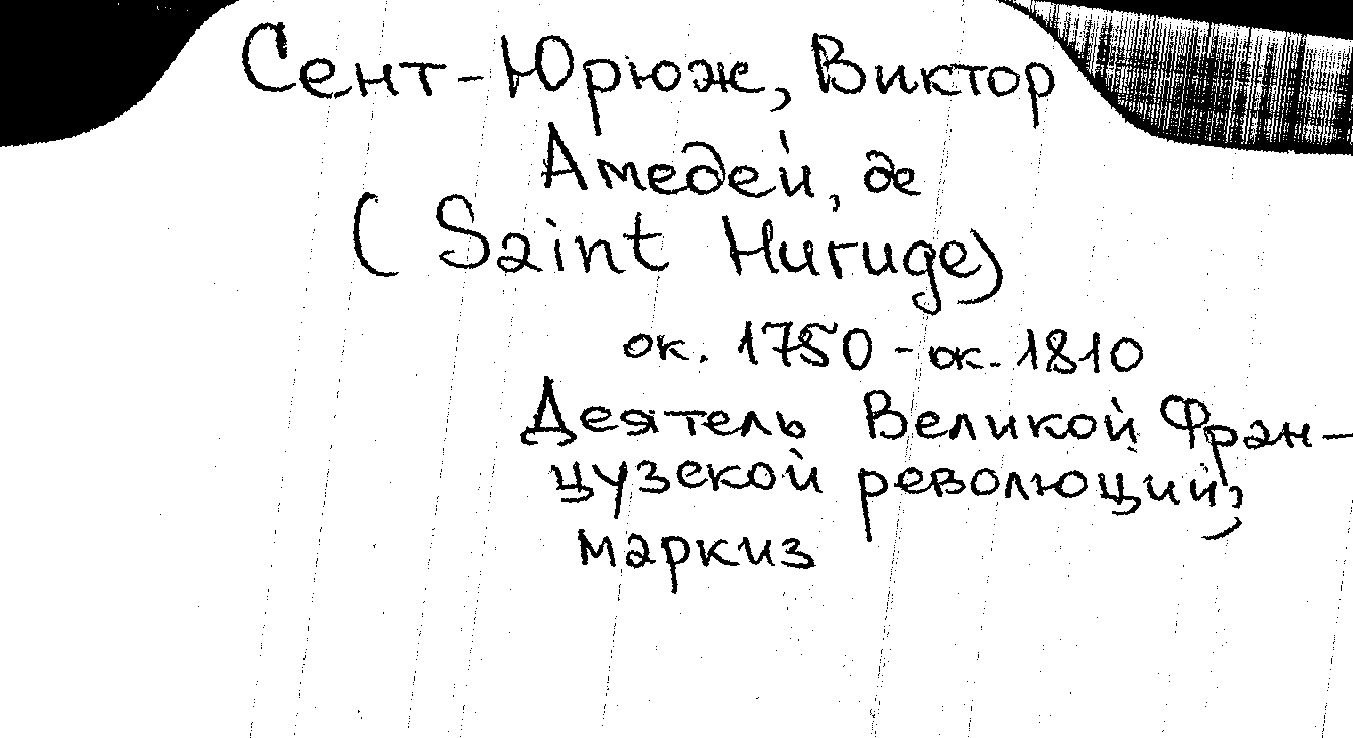 Сент-Юрюж, Виктор
Амедей, де
(Saint Huruge)
ок. 1750 - ок. 1810
Деятель Великой Фран-
цузской революции,
маркиз